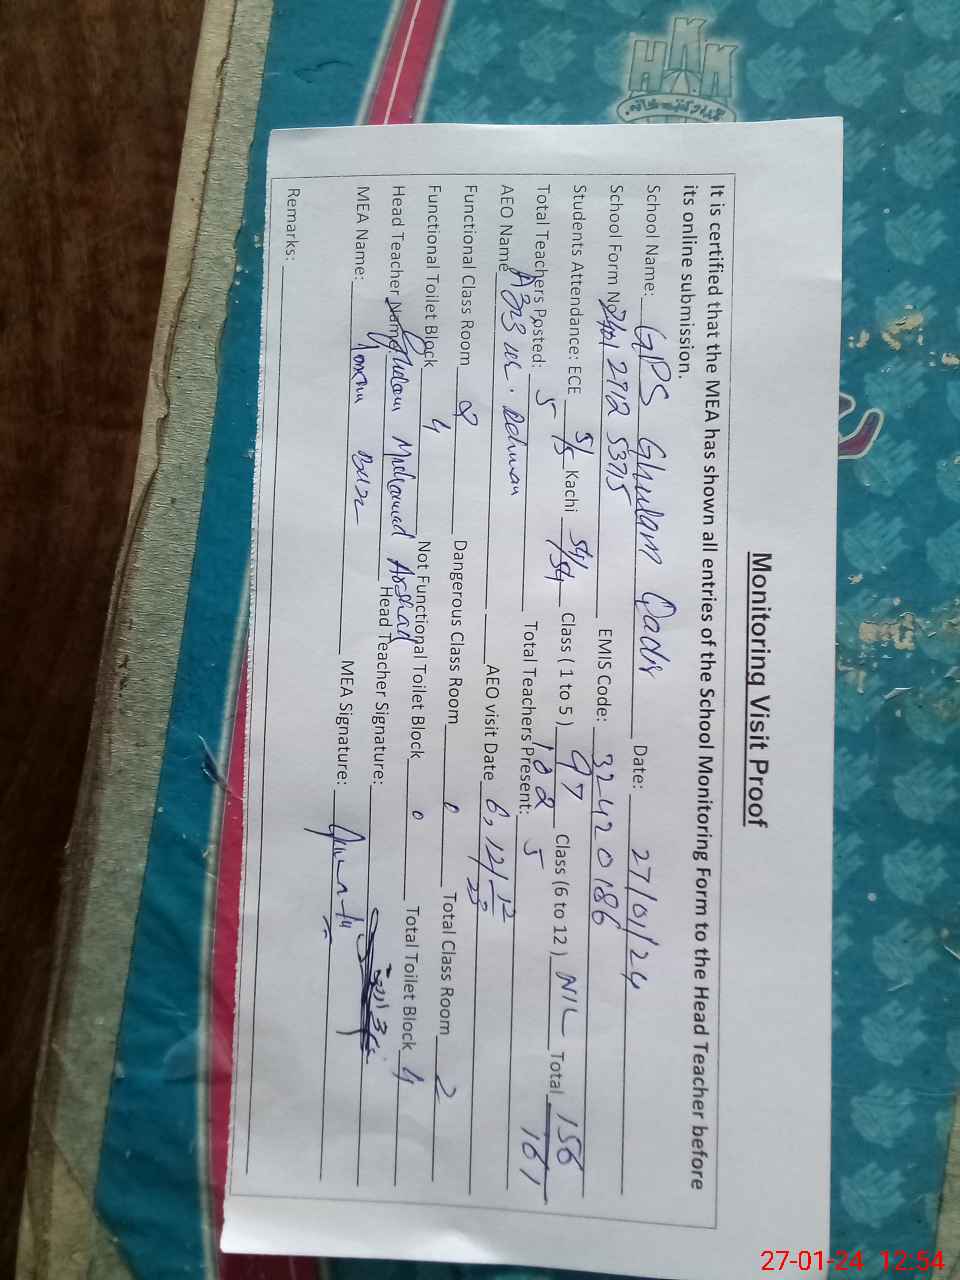 Monitoring Visit Proof
It is certified that the MEA has shown all entries of the School Monitoring Form to the Head Teacher before
its online submission.
School Name: GPS Ghulam Qadir Date: 27/01/24
School Form N 2712 5375 EMIS Code: 32420186
Students Attendance: ECE 5/5 Kachi 54/54 Class ( 1 to 5 ) 97/102 Class (6 to 12 ) NIL Total 156/161
Total Teachers Posted: 5 Total Teachers Present: 5
AEO Name Rehman AEO visit Date 6, 12/12
Functional Class Room 8 Dangerous Class Room 0 Total Class Room
Functional Toilet Block 4 Not Functional Toilet Block 0 Total Toilet Block 4
Head Teacher Name Ghulam Mohammad Arshad Head Teacher Signature:
MEA Name: MEA Signature:
Remarks:
27-01-24 12:54